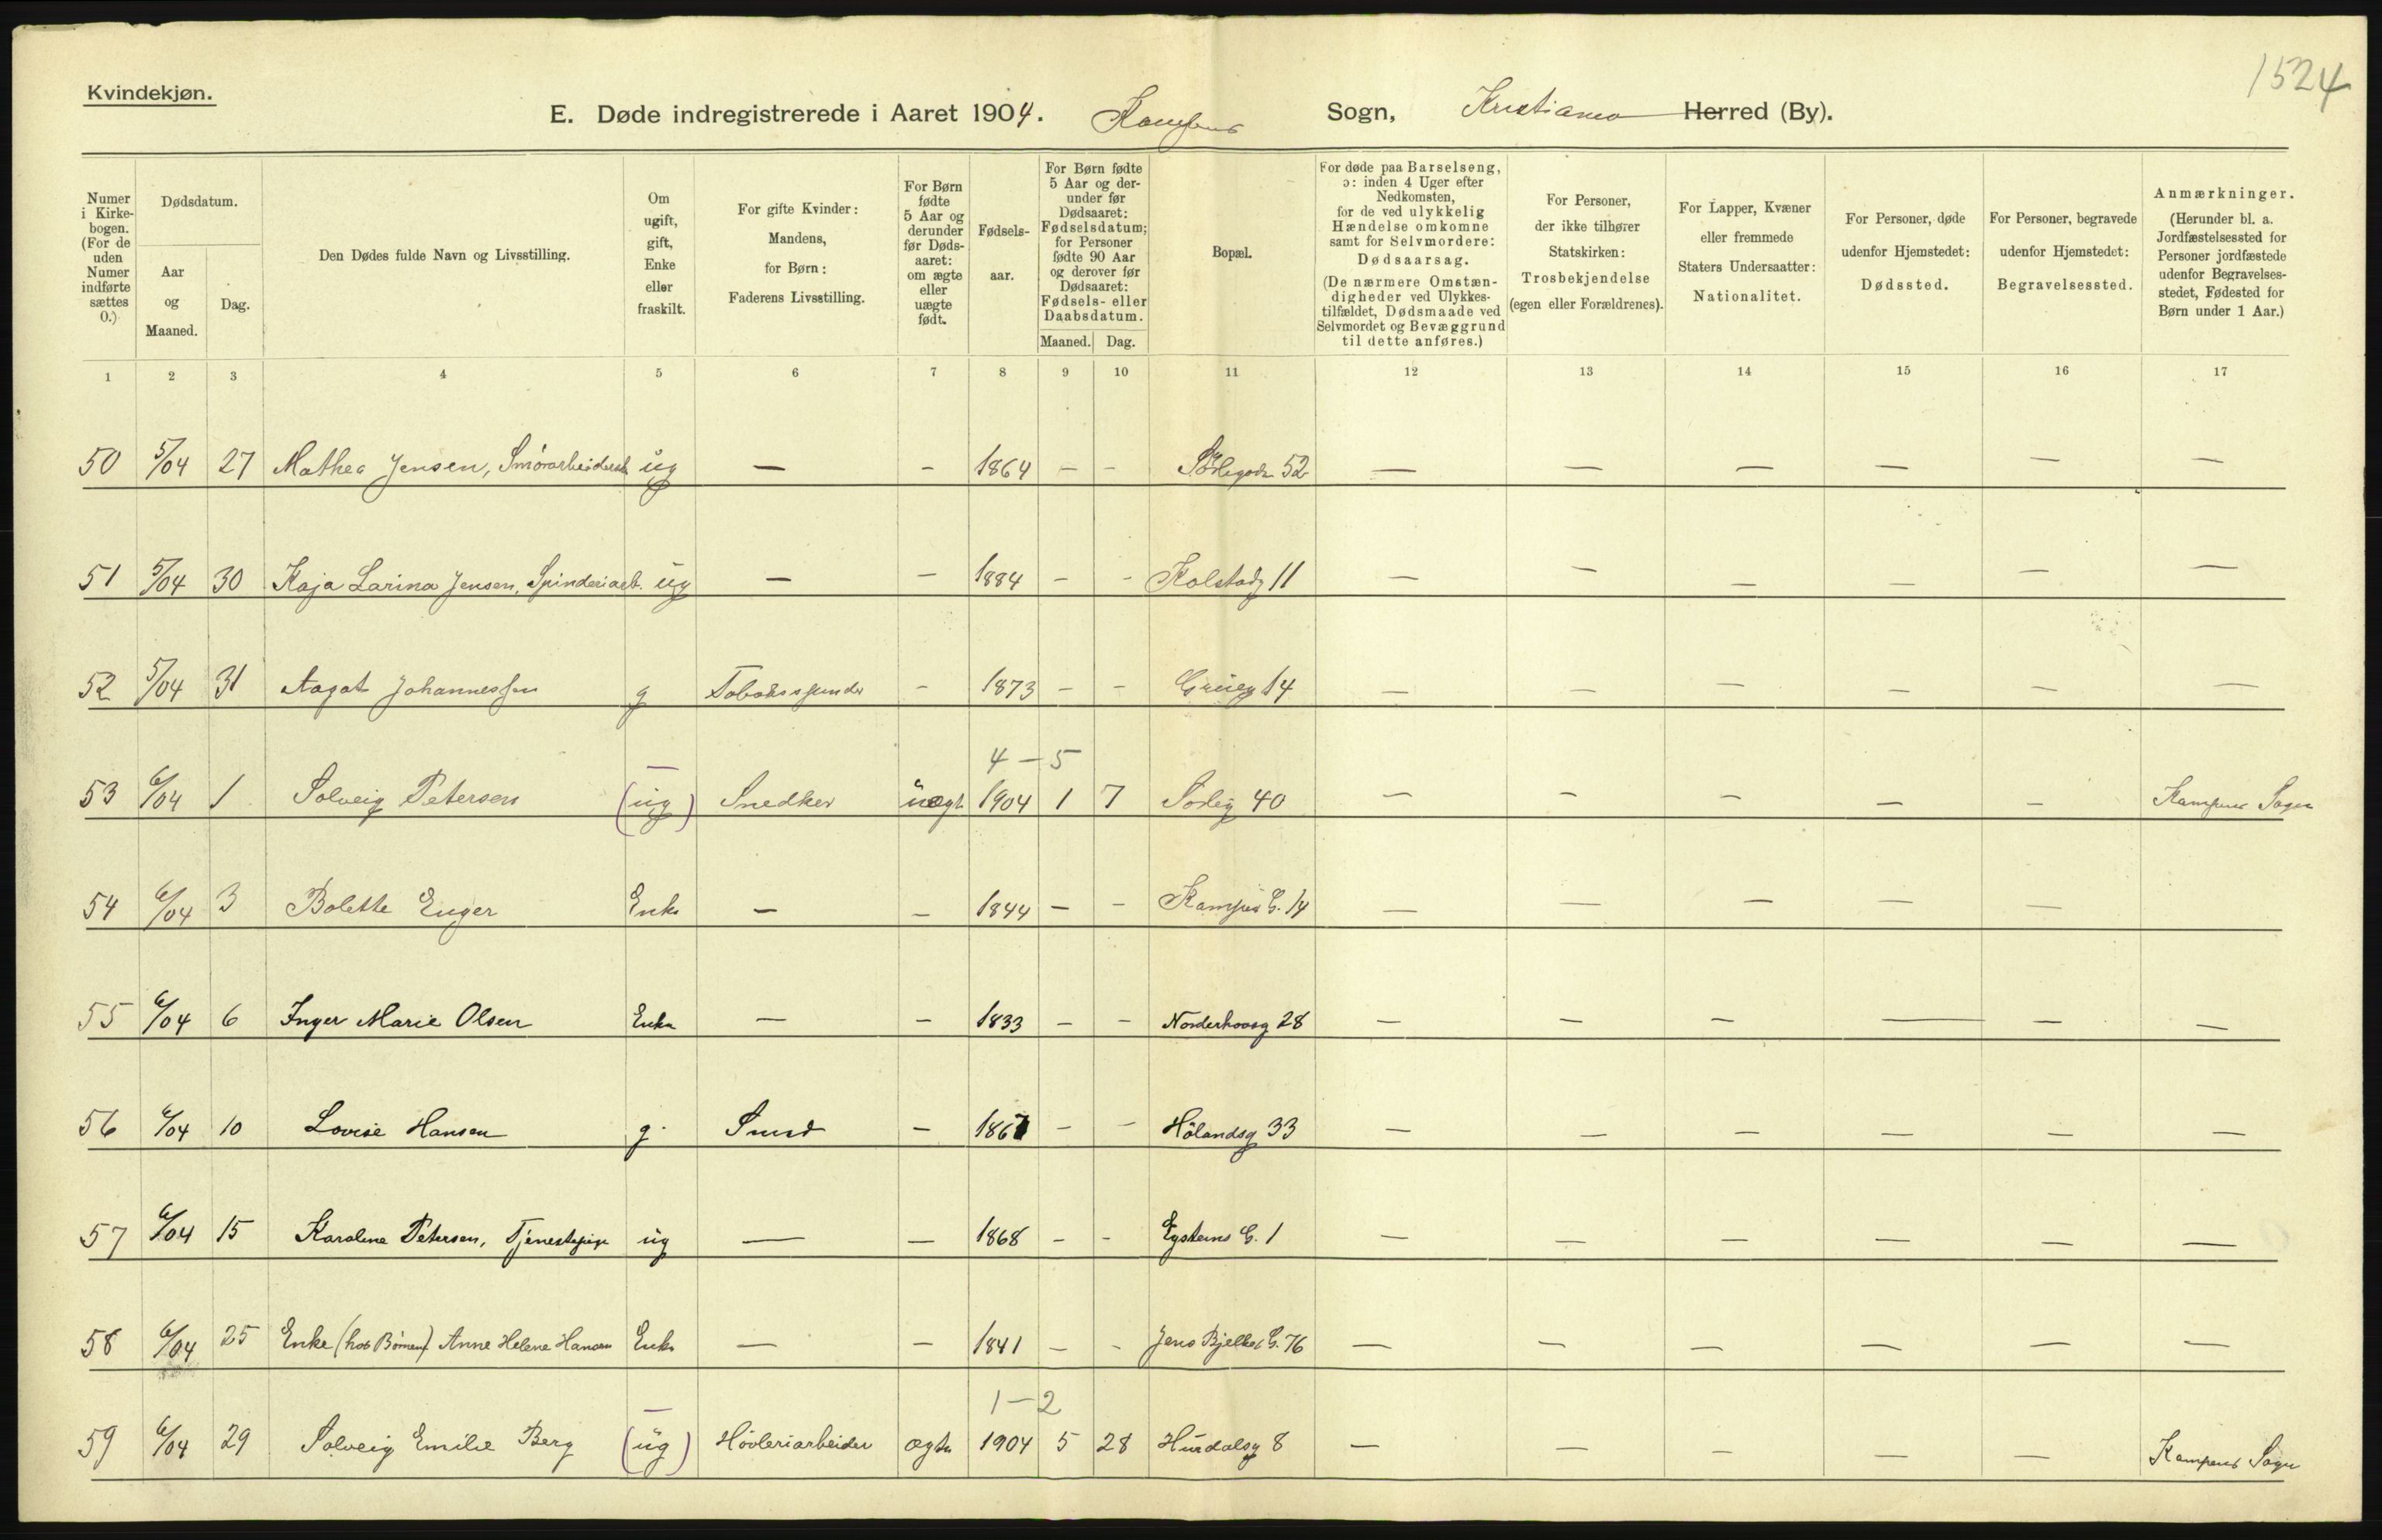 1524
Kvindekjøn.
E. Døde indregistrerede i Aaret 1904. Kampens Sogn, Kristiania Herred (By).
Numer i Kirkebogen. (For de uden Numer indførte sættes 0.)
Dødsdatum.
Aar og Maaned.
Dag.
Den Dødes fulde Navn og Livsstilling.
Om ugift, gift, Enke eller fraskilt.
For gifte Kvinder: Mandens, for Børn: Faderens Livsstilling.
For Børn fødte 5 Aar og derunder før Dødsaaret: om ægte eller uægte født.
Fødselsaar.
For Børn fødte 5 Aar og derunder før Dødsaaret: Fødselsdatum; for Personer fødte 90 Aar og derover før Dødsaaret: Fødsels- eller Daabsdatum.
Maaned. Dag.
Bopæl.
For døde paa Barselseng, ɔ: inden 4 Uger efter Nedkomsten, for de ved ulykkelig Hændelse omkomne samt for Selvmordere: Dødsaarsag. (De nærmere Omstændigheder ved Ulykkestilfældet, Dødsmaade ved Selvmordet og Bevæggrund til dette anføres.)
For Personer, der ikke tilhører Statskirken: Trosbekjendelse (egen eller Forældrenes).
For Lapper, Kvæner eller fremmede Staters Undersaatter: Nationalitet.
For Personer, døde udenfor Hjemstedet: Dødssted.
For Personer, begravede udenfor Hjemstedet: Begravelsessted.
Anmærkninger. (Herunder bl. a. Jordfæstelsessted for Personer jordfæstede udenfor Begravelsesstedet, Fødested for Børn under 1 Aar.)
1 2 3 4 5 6 7 8 9 10 11 12 13 14 15 16 17
50 5/04 27 Mathea Jensen, ug — – 1864 – – 52 — — — — — —
51 5/04 30 Kaja Larina Jensen, Spinderiarb. ug — – 1884 – – Kolstadg 11 — — — — — —
52 5/04 31 Aagot Johannessen g – 1873 – – Grüleg 14 — — — — — —
4 – 5
53 6/04 1 Solveig Petersen (ug) Snedker uægt 1904 1 7 Sørlig 40 — — — — — Kampens Sogn
54 6/04 3 Bolette Enger Enke — – 1844 – – Kampens G. 14 — — — — —
55 6/04 6 Inger Marie Olsen Enke — – 1833 – – Norderhovsg 28 — — — — — —
56 6/04 10 Lovise Hansen g. Smed – 1867 – – Hølandsg 33 — — — — — —
57 6/04 15 Karoline Petersen, Tjenestepige ug — – 1868 – – Eysteins G. 1 — — — — — —
58 6/04 25 Enke (hos Børnene) Anne Helene Hansen Enke — – 1841 – – Jens Bjelkes G. 76 — — — — — —
1 – 2
59 6/04 29 Solveig Emilie Berg (ug) Høvleriarbeider ægte 1904 5 28 Hurdalsg 8 — — — — — Kampens Sogn